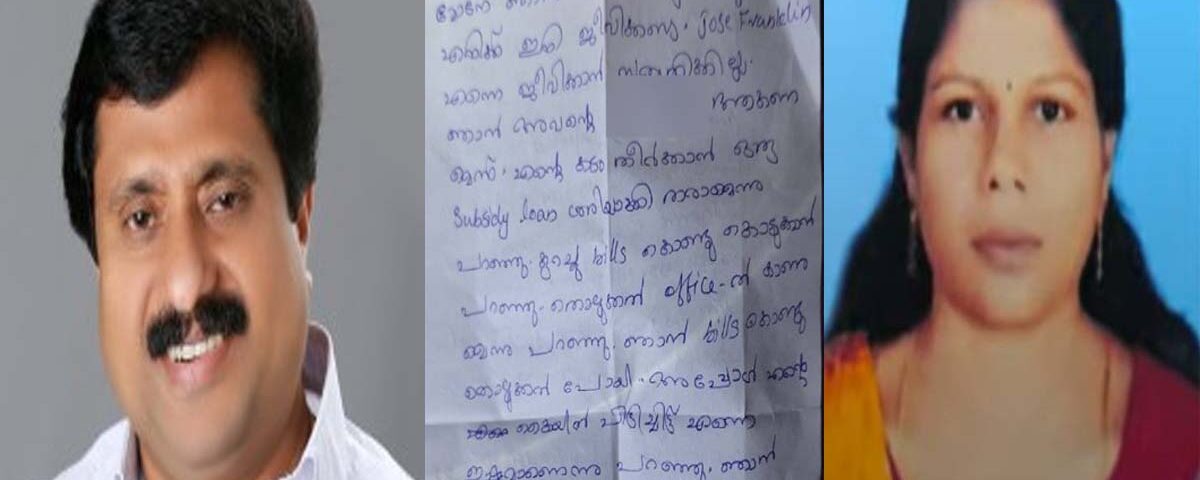 മോനേ ഞാൻ
എനിക്ക് ഇനി ജീവിക്കണ്ട. Jose Franklin
എന്നെ ജീവിക്കാൻ സമ്മതിക്കില്ല.
ഞാൻ അവന്റെ
എന്റെ കടം തീർക്കാൻ ഒരു
Subsidy loan ശരിയാക്കി തരാമെന്നു
പറഞ്ഞു. കുറച്ചു bills കൊണ്ടു കൊടുക്കാൻ
പറഞ്ഞു. office-ൽ
മെന്നു പറഞ്ഞു. ഞാൻ bills കൊണ്ടു
കൊടുക്കാൻ പോയി. അപ്പോൾ എന്റെ
കൈയിൽ പിടിച്ചിട്ട് എന്നെ
ഇഷ്ടമാണെന്നു പറഞ്ഞു. ഞാൻ